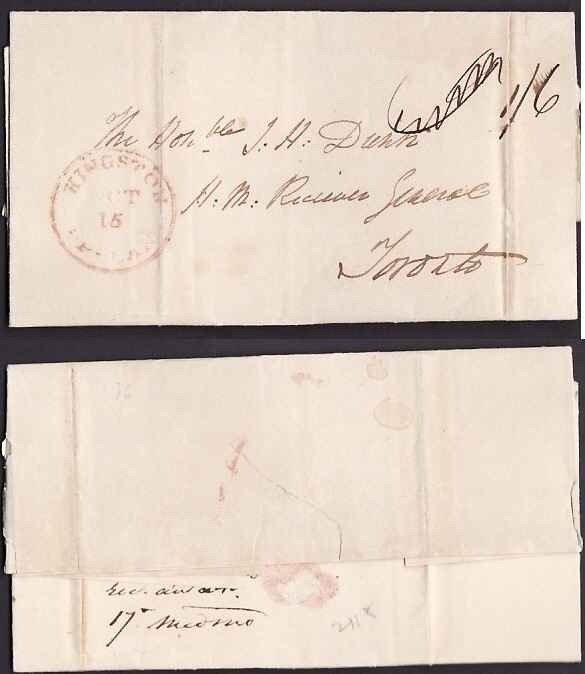 1/6
The Honble J. H. Dunn
H. M. Receiver General
Toronto
KINGSTON
OCT
15
U. CAN
36
17